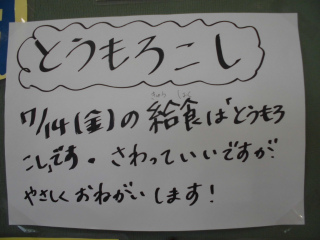 とうもろこし
きゅう しょく
7/14(金)の給食はどうもろ
こしです。さわっていいですが
やさしくおねがいします!